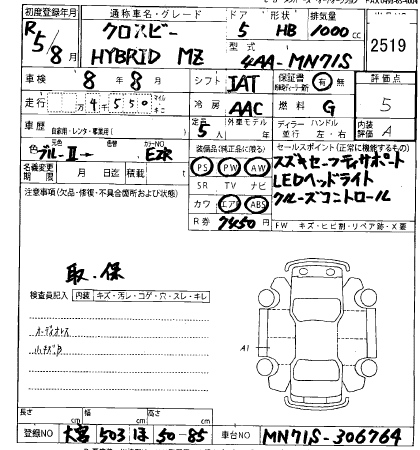 初度登録年月 通称車名・グレード ドア 形状 排気量
R5/8月 クロスビー HYBRID MZ 5 HB 1000cc 2519
型式 4AA-MN71S
車検 8年8月 シフト IAT 保証書 有 無 評価点
走行 万4千550 マイル キロ 冷房 AAC 燃料 G 5
車歴 自家用・レンタ・事業用( ) 定員 5人 外車モデル 年 ディーラー 並行 ハンドル 左・右 内装評価 A
色 元色 ブルーII→ カラーNO EZR 装備品(純正品に限る) セールスポイント(正常に機能するもの)
PS PW AW スズキセーフティサポート
名義変更期限 月 日迄 積載 SR TV ナビ LEDヘッドライト
注意事項(欠品・修復・不具合箇所及び状態) カワ エアB ABS クルーズコントロール
R券 7450円
FW キズ・ヒビ割・リペア跡・X要
取・保
検査員記入 内装 キズ・汚レ・コゲ・穴・スレ・キレ
オーディオレス
A1
長さ cm 幅 cm 高さ cm
登録NO 大宮 503 ほ 50-85 車台NO MN71S-306764